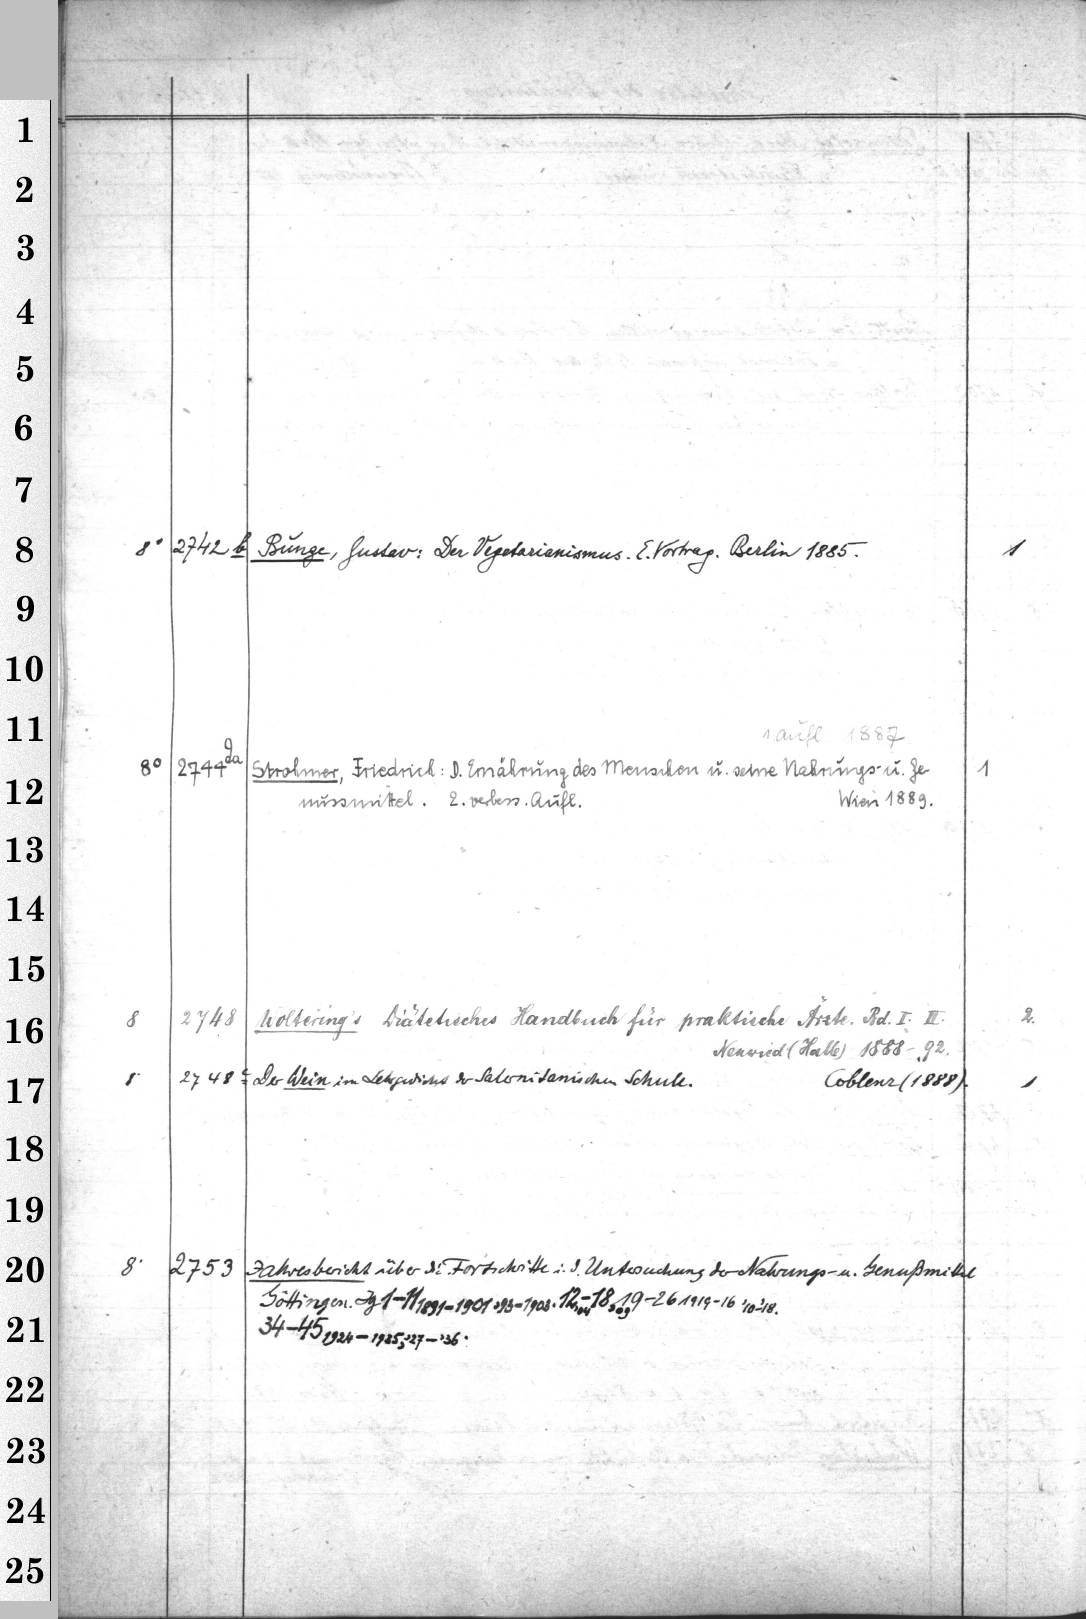 1
2
3
4
5
6
7
8° 2742 b Bunge, Gustav: Der Vegetarianismus. E. Vortrag. Berlin 1885. 1
8
9
10
11
1 Aufl 1887
8° 2744 da Strohmer, Friedrich: D. Ernährung des Menschen u. seine Nahrungs- u. Ge- 1
12
nussmittel. 2. verbess. Aufl. Wien 1889.
13
14
15
8 2748 Woltering's Diätetisches Handbuch für praktische Ärzte. Bd. I. II. 2.
16
Neuwied (Halle) 1888-92.
8 2748 c Der Wein im Lehrgedicht der Salernitanischen Schule. Coblenz (1888). 1
17
18
19
8° 2753 Jahresbericht über die Fortschritte i. d. Untersuchung der Nahrungs- u. Genußmittel
20
Göttingen. Jg 1-11 1891-1901 '93-1903. 12-18, 19-26
21
34-45
22
23
24
25